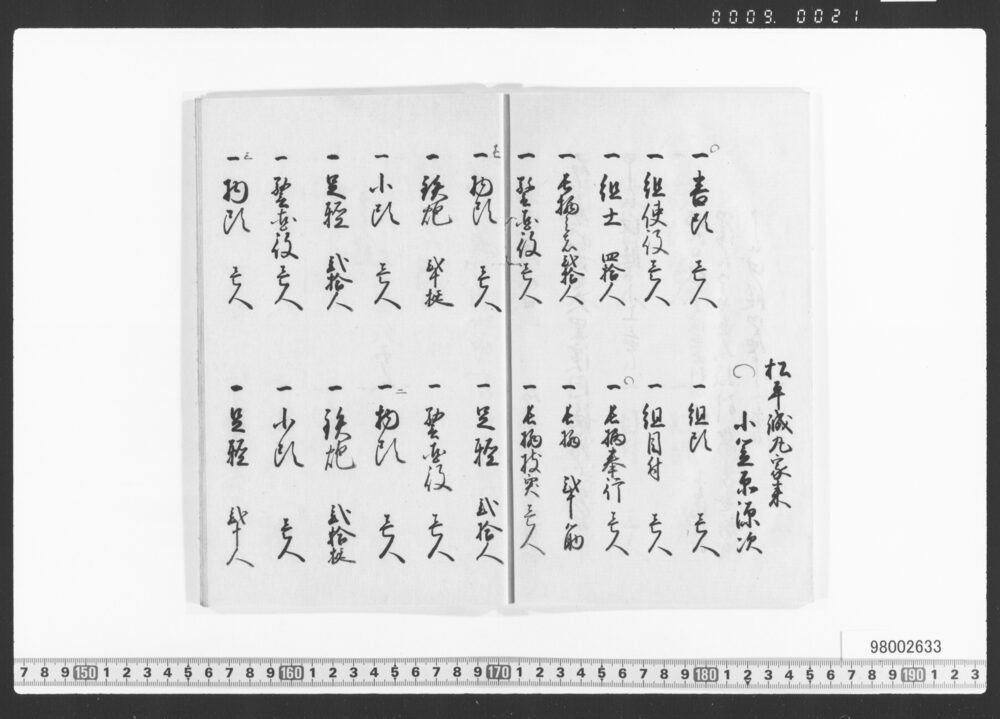 松平誠丸家来
小笠原源次
一番頭 壱人
一組頭 壱人
一組使役 壱人
一組目付 壱人
一組士 四拾人
一長柄奉行 壱人
一長柄之者 弐拾人
一長柄 弐十筋
一 壱人
一長柄 壱人
一物頭 壱人
一足軽 弐拾人
一鉄炮 弐十挺
一 壱人
一小頭 壱人
二
一物頭 壱人
一足軽 弐拾人
一鉄炮 弐拾挺
一 壱人
一小頭 壱人
三
一物頭 壱人
一足軽 弐十人
0009. 0021
98002633
7 8 9 150 1 2 3 4 5 6 7 8 9 160 1 2 3 4 5 6 7 8 9 170 1 2 3 4 5 6 7 8 9 180 1 2 3 4 5 6 7 8 9 190 1 2 3